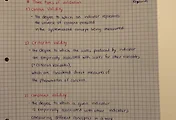 Three types of validation
1) Content Validity
· the degree to which an indicator represents
the universe of content entailed
in the systematized concept being measured
2) Criterion Validity
· the degree to which the scores produced by indicator
are empirically associated with scores for other variables
(criterion variables)
which are considered direct measures of
the phenomenon of concern
3) Construct validity
· the degree to which a given indicator
is empirically associated with other indicators